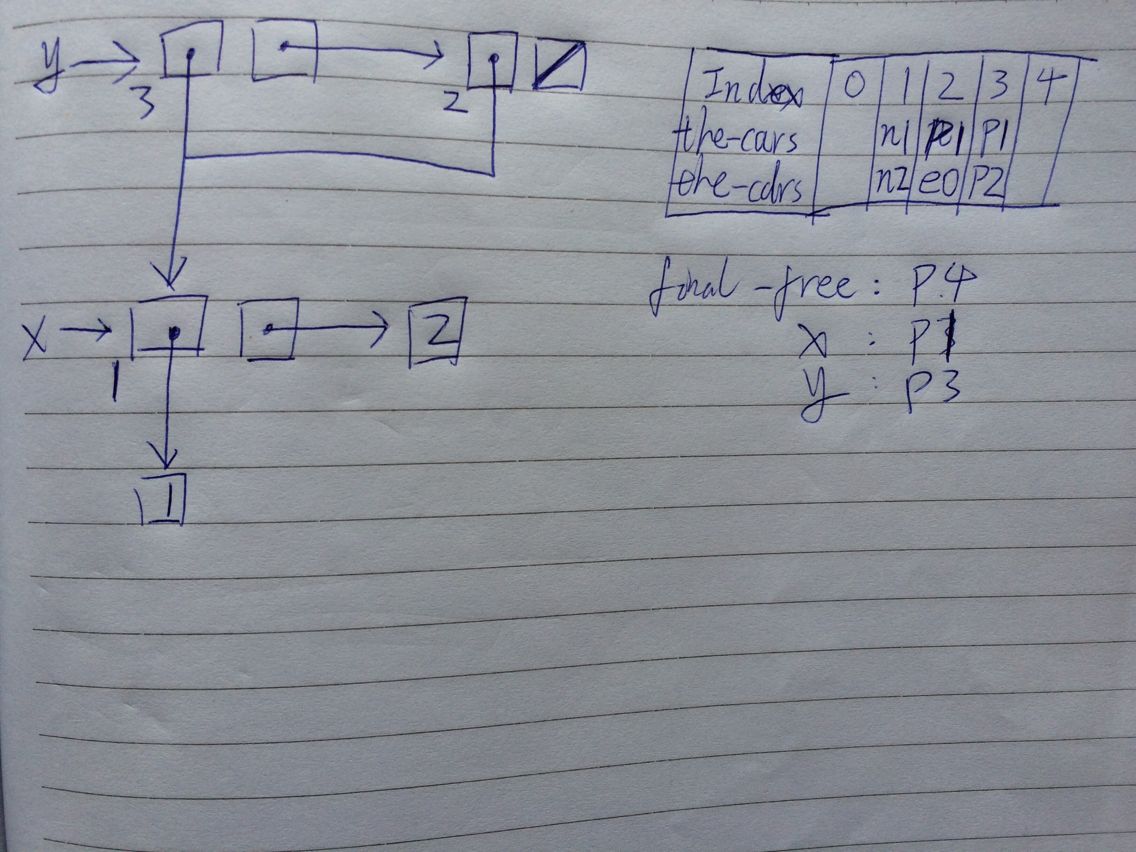 y
3
2
Index 0 1 2 3 4
the-cars n1 p1 p1
the-cdrs n2 e0 p2
x
1
2
1
final-free : p4
x : p1
y : p3